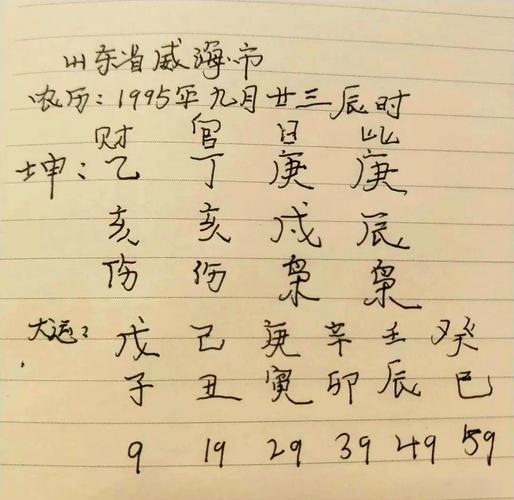 山东省威海市
农历：1995年九月廿三辰时
财 官 日 比
坤：乙 丁 庚 庚
亥 亥 戌 辰
伤 伤 枭 枭
大运：戊 己 庚 辛 壬 癸
子 丑 寅 卯 辰 巳
9 19 29 39 49 59